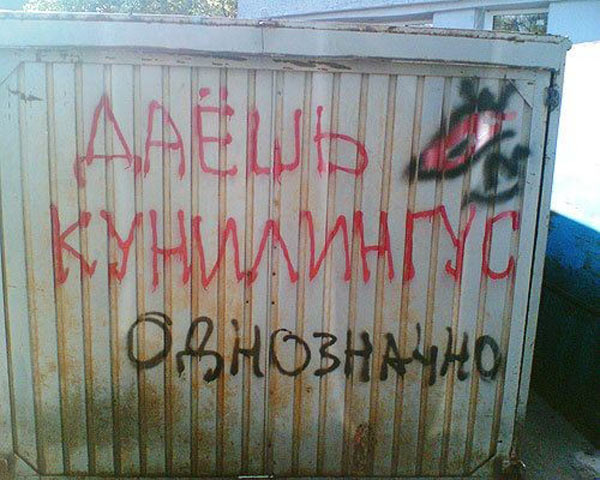 ДАЁШЬ
КУНИЛИНГУС
ОДНОЗНАЧНО